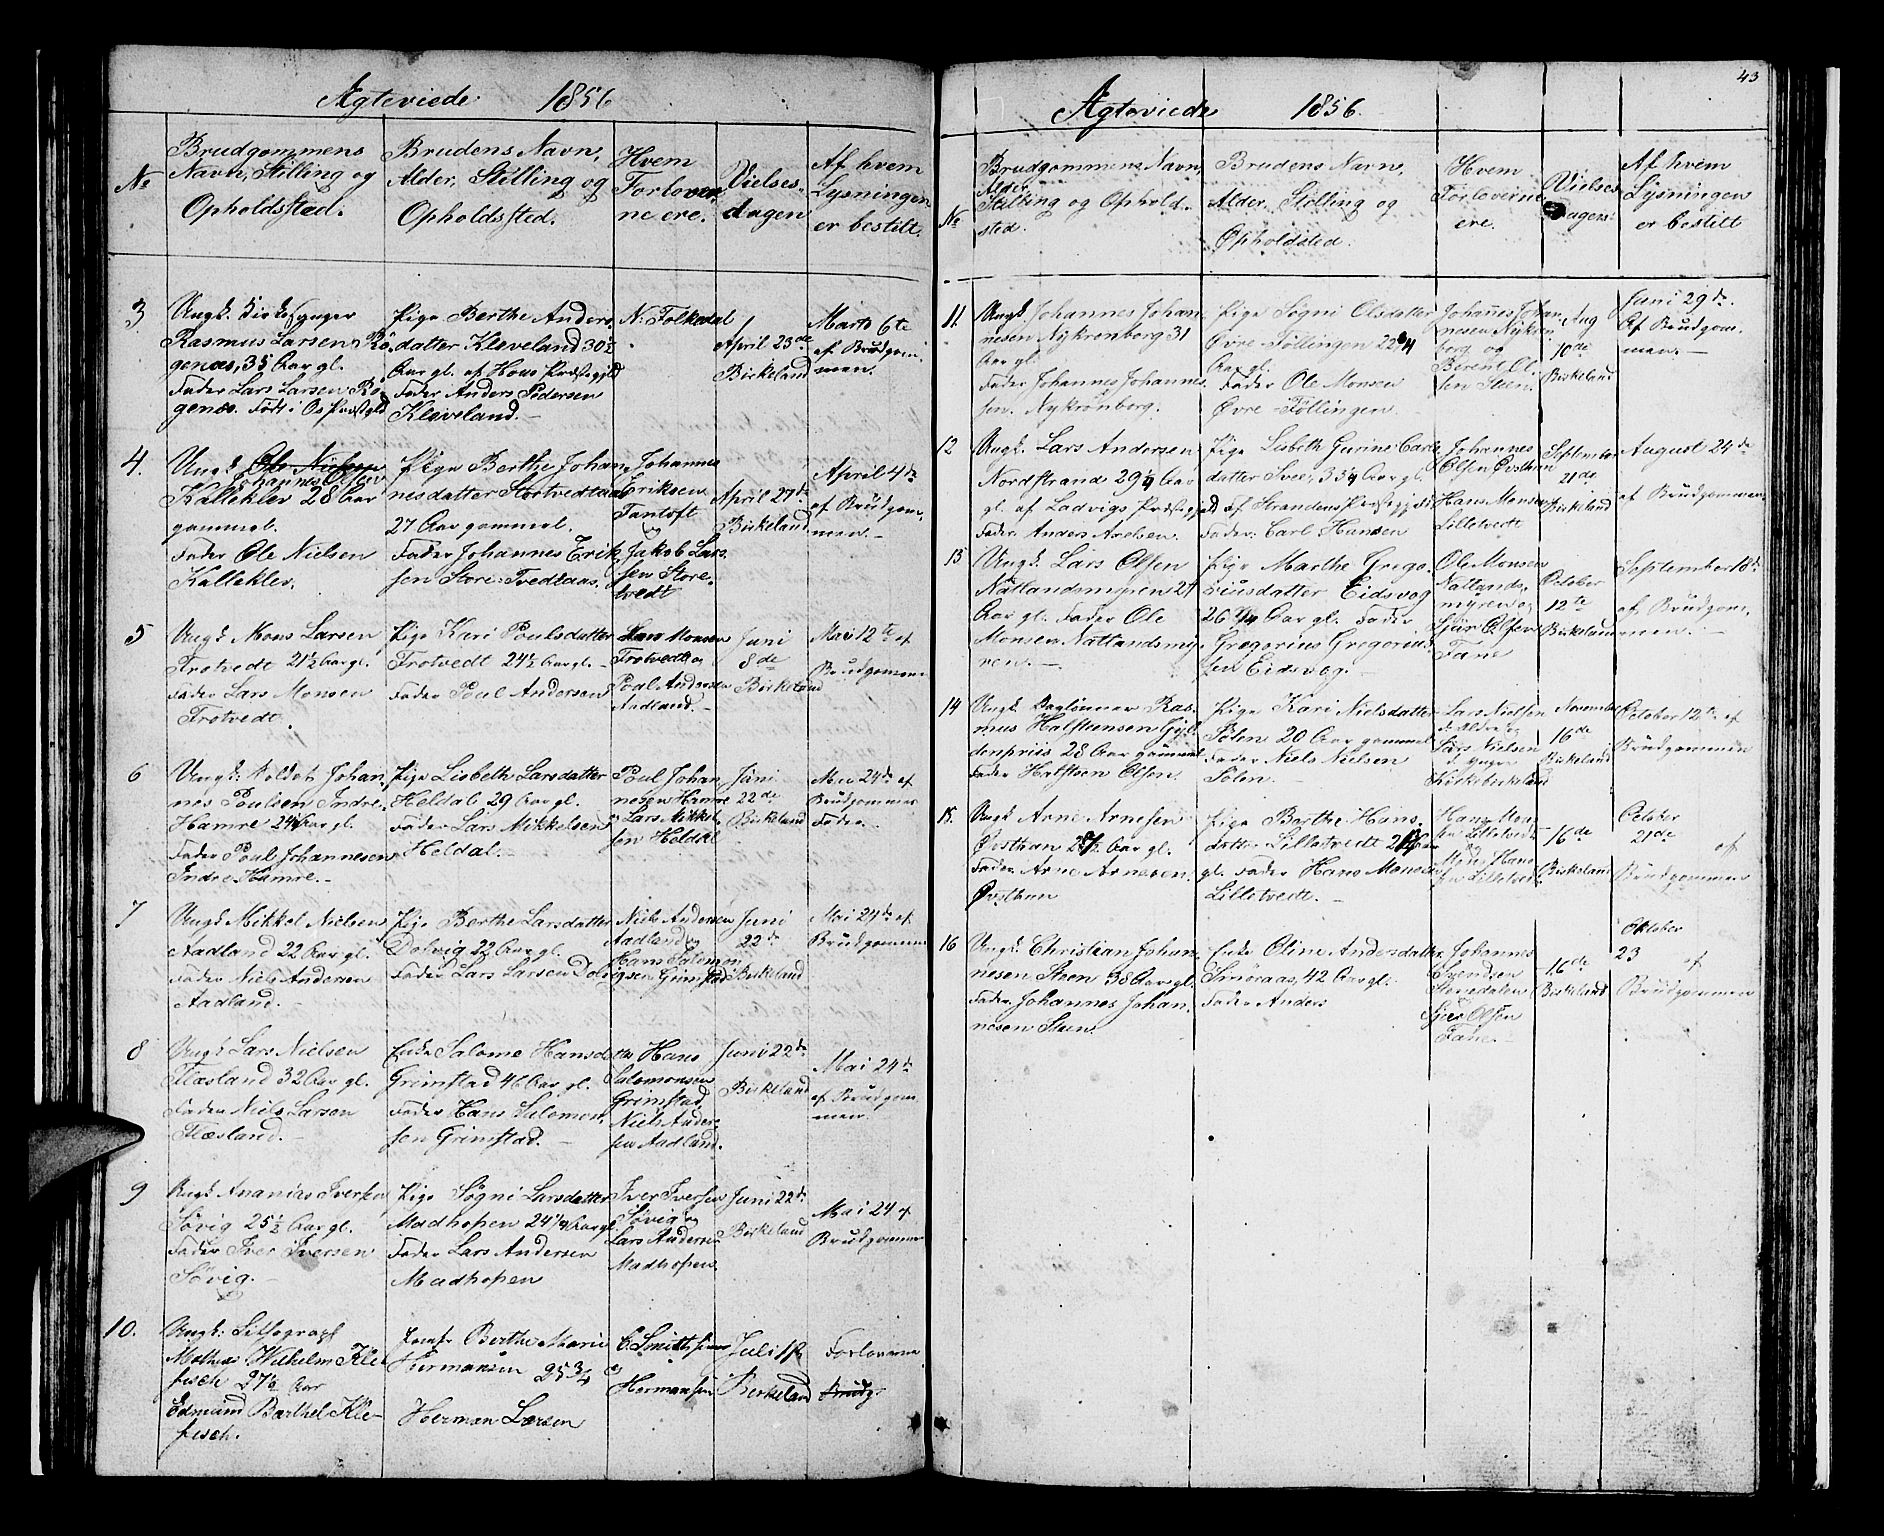 Ægteviede 1856
No
Brudgommens
Navn, Stilling og
Opholdssted.
Brudens Navn,
Alder, Stilling og
Opholdssted.
Hvem
Forlover-
ne ere.
Vielses-
dagen
Af hvem
Lysningen
er bestilt.
3
Ungk. Kirkesynger
Rasmus Larsen Rø-
genæs, 35 Aar gl.
Fader Lars Larsen Rø-
genæs. Født i Os Præstegjeld
Pige Berthe Anders-
datter Kleveland 30½
Aar gl. af Hous Præstegjeld
Fader Anders Pedersen
Kleveland.
N. Folkedal
April 23de
Birkeland
Marts 6te
af Brudgom-
men.
4.
Ungk. Ole Nielsen
Johannes Olsen
Kalleklev 28 Aar
gammel.
Fader Ole Nielsen
Kalleklev.
Pige Berthe Johan-
nesdatter Stortvedtaas
27 Aar gammel.
Fader Johannes Erik-
sen Store-Tvedtaas.
Johannes
Eriksen
Tantoft
og
Jakob Lars-
sen Store-
tvedt
April 27de
Birkeland
April 4de
af Brudgom-
men.
5
Ungk. Mons Larsen
Trotvedt 21½ Aar gl.
Fader Lars Monsen
Trotvedt.
Pige Kari Poulsdatter
Trotvedt 24½ Aar gl.
Fader Poul Andersen
Lars Monsen
Trotvedt og
Poul Andersen
Aadland.
Juni
8de
Birkeland
Mai 12te af
Brudgommen
6
Ungk. Soldat Johan-
nes Poulsen Indre-
Hamre 24 Aar gl.
Fader Poul Johannesen
Indre Hamre.
Pige Lisbeth Larsdatter
Heldal 29 Aar gl.
Fader Lars Mikkelsen
Heldal.
Poul Johan-
nesen Hamre
og Lars Mikkel-
sen Heldal
Juni
22de
Birkeland
Mai 24de af
Brudgommens
Fader.
7
Ungk. Mikkel Nielsen
Aadland 22 Aar gl.
Fader Niels Andersen
Aadland.
Pige Berthe Larsdatter
Dolvig 22 Aar gl.
Fader Lars Larsen Dolvig
Niels Andersen
Aadland og
Hans Salomon-
sen Grimstad
Juni
22de
Birkeland
Mai 24de af
Brudgommen
8
Ungk. Lars Nielsen
Flæsland 32 Aar gl.
Fader Niels Larsen
Flæsland.
Enke Salome Hansdatter
Grimstad 46 Aar gl.
Fader Hans Salomon-
sen Grimstad.
Hans
Salomonsen
Grimstad
Niels Ander-
sen Aadland.
Juni 22de
Birkeland
Mai 24de
af Brudgom-
men.
9
Ungk. Ananias Iversen
Søvig 25½ Aar gl.
Fader Iver Iversen
Søvig.
Pige Søgni Larsdatter
Madhopen 24¼ Aar gl.
Fader Lars Andersen
Madhopen
Iver Iversen
Søvig og
Lars Andersen
Madhopen.
Juni 22de
Birkeland
Mai 24 af
Brudgommen
10.
Ungk: Lithograph
Mathias Wilhelm Kle-
fisch 27½ Aar
Edmund Barthel Kle-
fisch.
Jomfr Berthe Marie
Hermansen 25¾
Herman Larsen
C. Smitt
og
Hermansen
Juli
Birkeland
Forloverne
Brudg.
43
Ægteviede 1856.
No
Brudgommens Navn,
Alder,
Stilling og Ophold-
sted.
Brudens Navn,
Alder, Stilling og
Opholdsted.
Hvem
Forloverne
ere.
Vielses
dagen
Af hvem
Lysningen
er bestilt
11.
Ungk. Johannes Johan-
nesen Nykrønborg 31
Aar gl.
Fader Johannes Johannes-
sen Nykrønborg.
Pige Søgni Olsdatter
Øvre-Føllingen 22
Aar gl.
Fader Ole Monsen
Øvre-Føllingen
Johannes Johan-
nesen Nykrøn-
borg og
Berent Ol-
sen Steen.
Aug
10de
Birkeland
Juni 29de.
Af Brudgom-
men.
12
Ungk. Lars Andersen
Nordstrand 29¼ Aar
gl. af Ladvigs Præstegjeld
Fader Anders Axelsen.
Pige Lisbeth Gurine Carls-
datter Sver, 33¼ Aar gl.
af Strandens Præstegjeld
Fader: Carl Hansen
Johannes
Olsen Øvsthun
Hans Monsen
Lilletvedt
September
21de
Birkeland
August 24de
af Brudgommen
13
Ungk. Lars Olsen
Natlandsmyren 27
Aar gl. Fader Ole
Monsen Natlandsmy-
ren.
Pige Marthe Grego-
riusdatter Eidsvog
26¾ Aar gl. Fader
Gregorius Gregorius-
sen Eidsvog.
Ole Monsen
Natlands-
myren og
Sjur Olsen
Fane
October
12te
Birkeland
September 18de
af Brudgom-
men.
14
Ungk. Daglønner Ras-
mus Halstensen Gyl-
denpriis 28 Aar gammel
Fader Halsten Olsen.
Pige Kari Nielsdatter
Sølen 20 Aar gammel
Fader Niels Nielsen
Sølen.
Lars Nielsen
d. Ældre og
Lars Nielsen
d. yngre
Kirkebirkeland
November
16de
Birkeland
October 12te af
Brudgommen
15.
Ungk Arne Arnesen
Øvsthun 28½ Aar gl.
Fader Arne Arnesen
Øvsthun
Pige Berthe Hans-
datter Lilletvedt Aar
gl. Fader Hans Monsen
Lilletvedt.
Hans Mon-
sen Lilletvedt
og
Mons Hans-
sen Lilletvedt
16de
Birkeland
October
21de
af
Brudgommen
16
Ungk. Christian Johan-
nesen Steen 38 Aar gl.
Fader Johannes Johan-
nesen Steen
Enke Oline Andersdatter
Smøraas, 42 Aar gl.
Fader Anders
Johannes
Svendsen
Steensdalen
Sjur Olsen
Fane.
16de
Birkeland
Oktober
23 af
Brudgommen